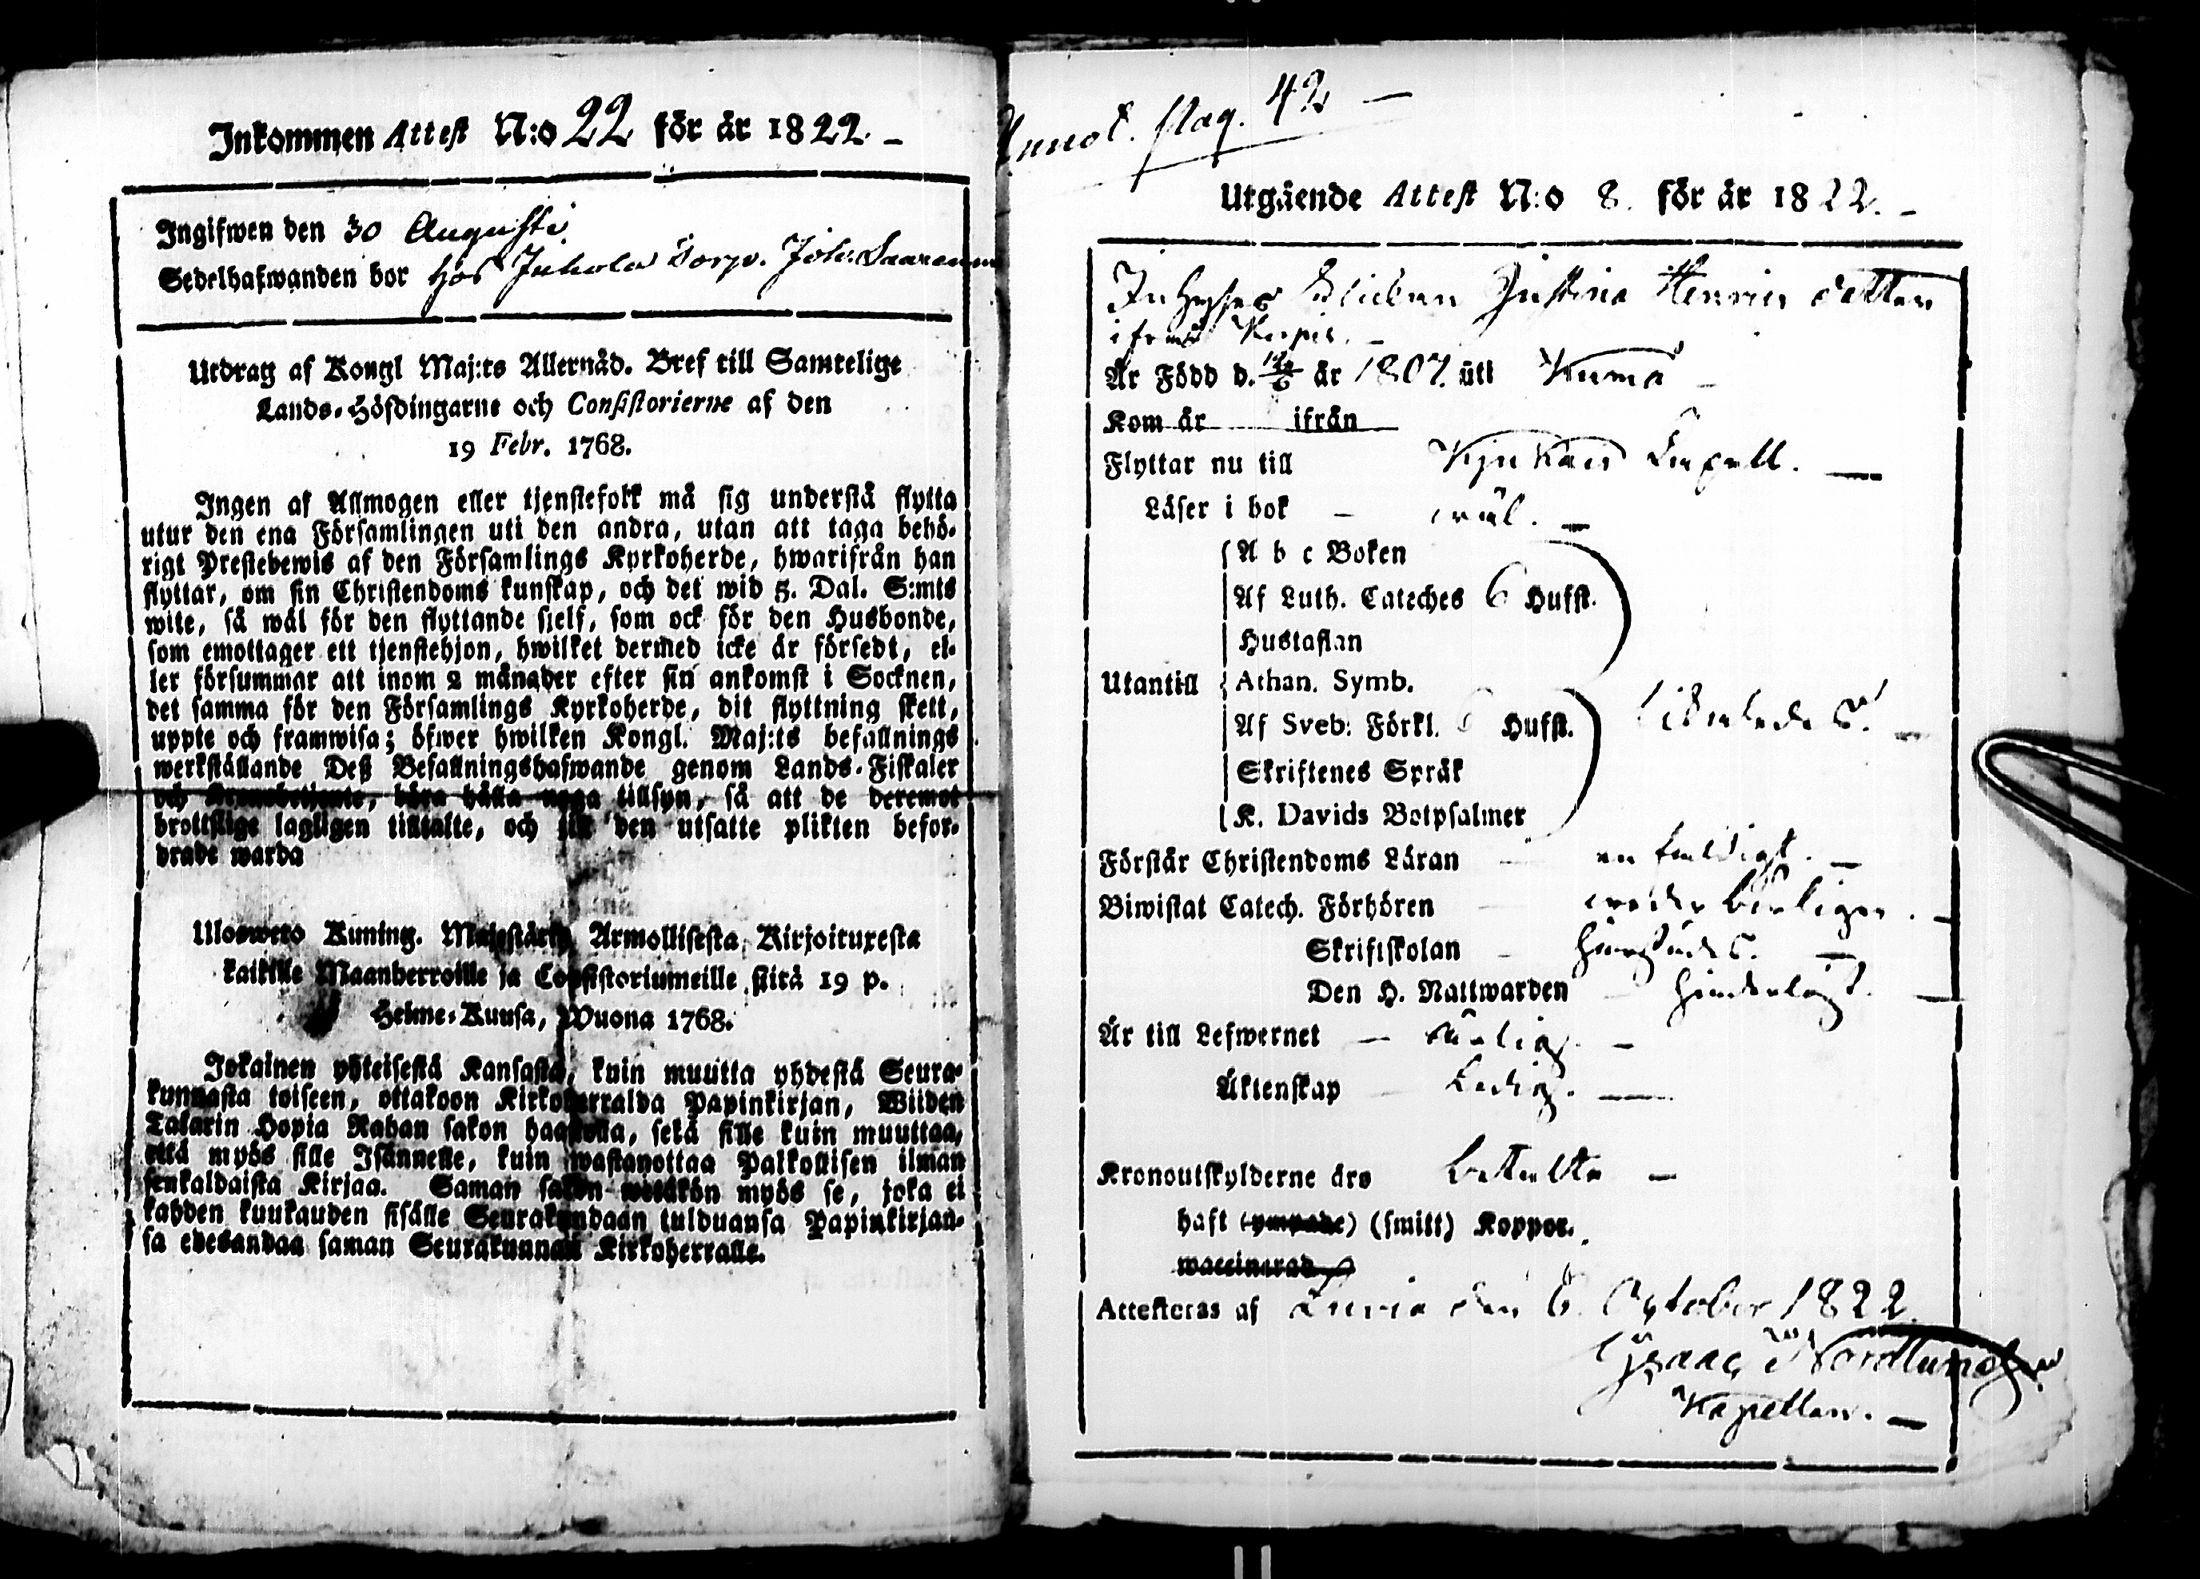 Inkommen Attest N:o 22 för år 1822.
Ingifwen den 30 Augusti
Sedelhafwanden bor hos Juhola Torp. Joh.
Utdrag af Kongl Maj:ts Allernåd. Bref till Samtelige
Lands-Höfdingarne och Consistorierne af den
19 Febr. 1768.
Ingen af Allmogen eller tjenstefolk må sig understå flytta
utur den ena Församlingen uti den andra, utan att taga behö-
rigt Prestebewis af den Församlings Kyrkoherde, hwarifrån han
flyttar, om sin Christendoms kunskap, och det wid 5. Dal. S:mts
wite, så wäl för den flyttande sjelf, som ock för den Husbonde,
som emottager ett tjenstehjon, hwilket dermed icke är försedt, el-
ler försummar att inom 2 månader efter sin ankomst i Socknen,
det samma för den Församlings Kyrkoherde, dit flyttning skett,
uppte och framwisa; öfwer hwilken Kongl. Maj:ts befallnings
werkställande Deß Befallningshafwande genom Lands-Fiskaler
och Kronobetjente, böra hålla noga tillsyn, så att de deremot
brottslige lagligen tilltalte, och till den utsatte plikten befor-
drade warda
Ulosweto Kuning. Majestätin Armollisesta Kirjoituxesta
kaikille Maanherroille ja Consistoriumeille siitä 19 p.
Helme-Kuusa, Wuona 1768.
Jokainen yhteisestä Kansasta, kuin muutta yhdestä Seura-
kunnasta toiseen, ottakoon Kirkoherralda Papinkirjan, Wiiden
Talarin Hopia Rahan sakon haastolla, sekä sille kuin muuttaa,
että myös sille Isännelle, kuin wastanottaa Palkollisen ilman
senkaldaista Kirjaa. Saman sakon wetäkön myös se, joka ei
kahden kuukauden sisälle Seurakundaan tulduansa Papinkirjan-
sa edesandaa saman Seurakunnan Kirkoherralle.
Annot. pag. 42
Utgående Attest N:o 8. för år 1822.
Inhyses Flickan Justina Henrics dotter
ifrån
Är Född d. år 1807. uti Kumo
Kom år ifrån
Flyttar nu till Kjukais Capell.
Läser i bok wäl.
A b c Boken
Af Luth. Cateches 6 Hufst.
Hustaflan
Utantill Athan. Symb.
Af Sveb: Förkl. 6 Hufst.
Skriftenes Språk
K. Davids Botpsalmer
Förstår Christendoms Läran enfaldigt.
Biwistat Catech. Förhören
Skriftskolan
Den H. Nattwarden
Är till Lefwernet ärlig.
Äktenskap Ledig.
Kronoutskylderne äro betalta
haft (ympade) (smitt) Koppor.
waccinerad
Attesteras af Luvia den 6 October 1822.
Isaac Nordlund
Kapellan.